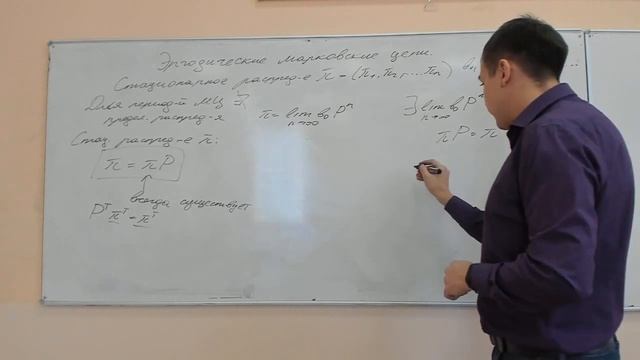 Эргодические марковские цепи.
Стационарное распред-е π = (π₁, π₂, ... πₙ)
Для период-й МЦ ∄
предел. распред-я
π = lim b₀ Pⁿ
n→∞
∃ lim b₀ Pⁿ
n→∞
πP = π
Стац. распред-е π:
π = πP
всегда существует
Pᵀ πᵀ = πᵀ